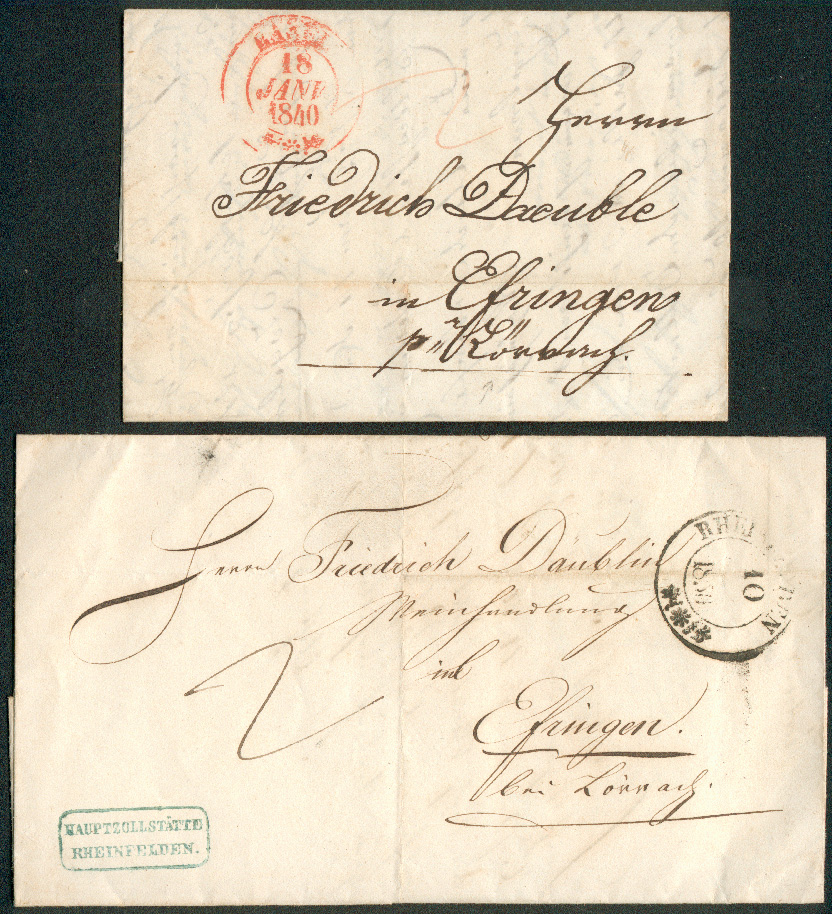 BASEL
18
JANV
1840
2
Herrn
Friedrich Daeuble
in Efringen
p" Lörrach.
Herrn Friedrich Däublin
Weinhandlung
in
Efringen.
bei Lörrach.
2
10
HAUPTZOLLSTÄTTE
RHEINFELDEN.